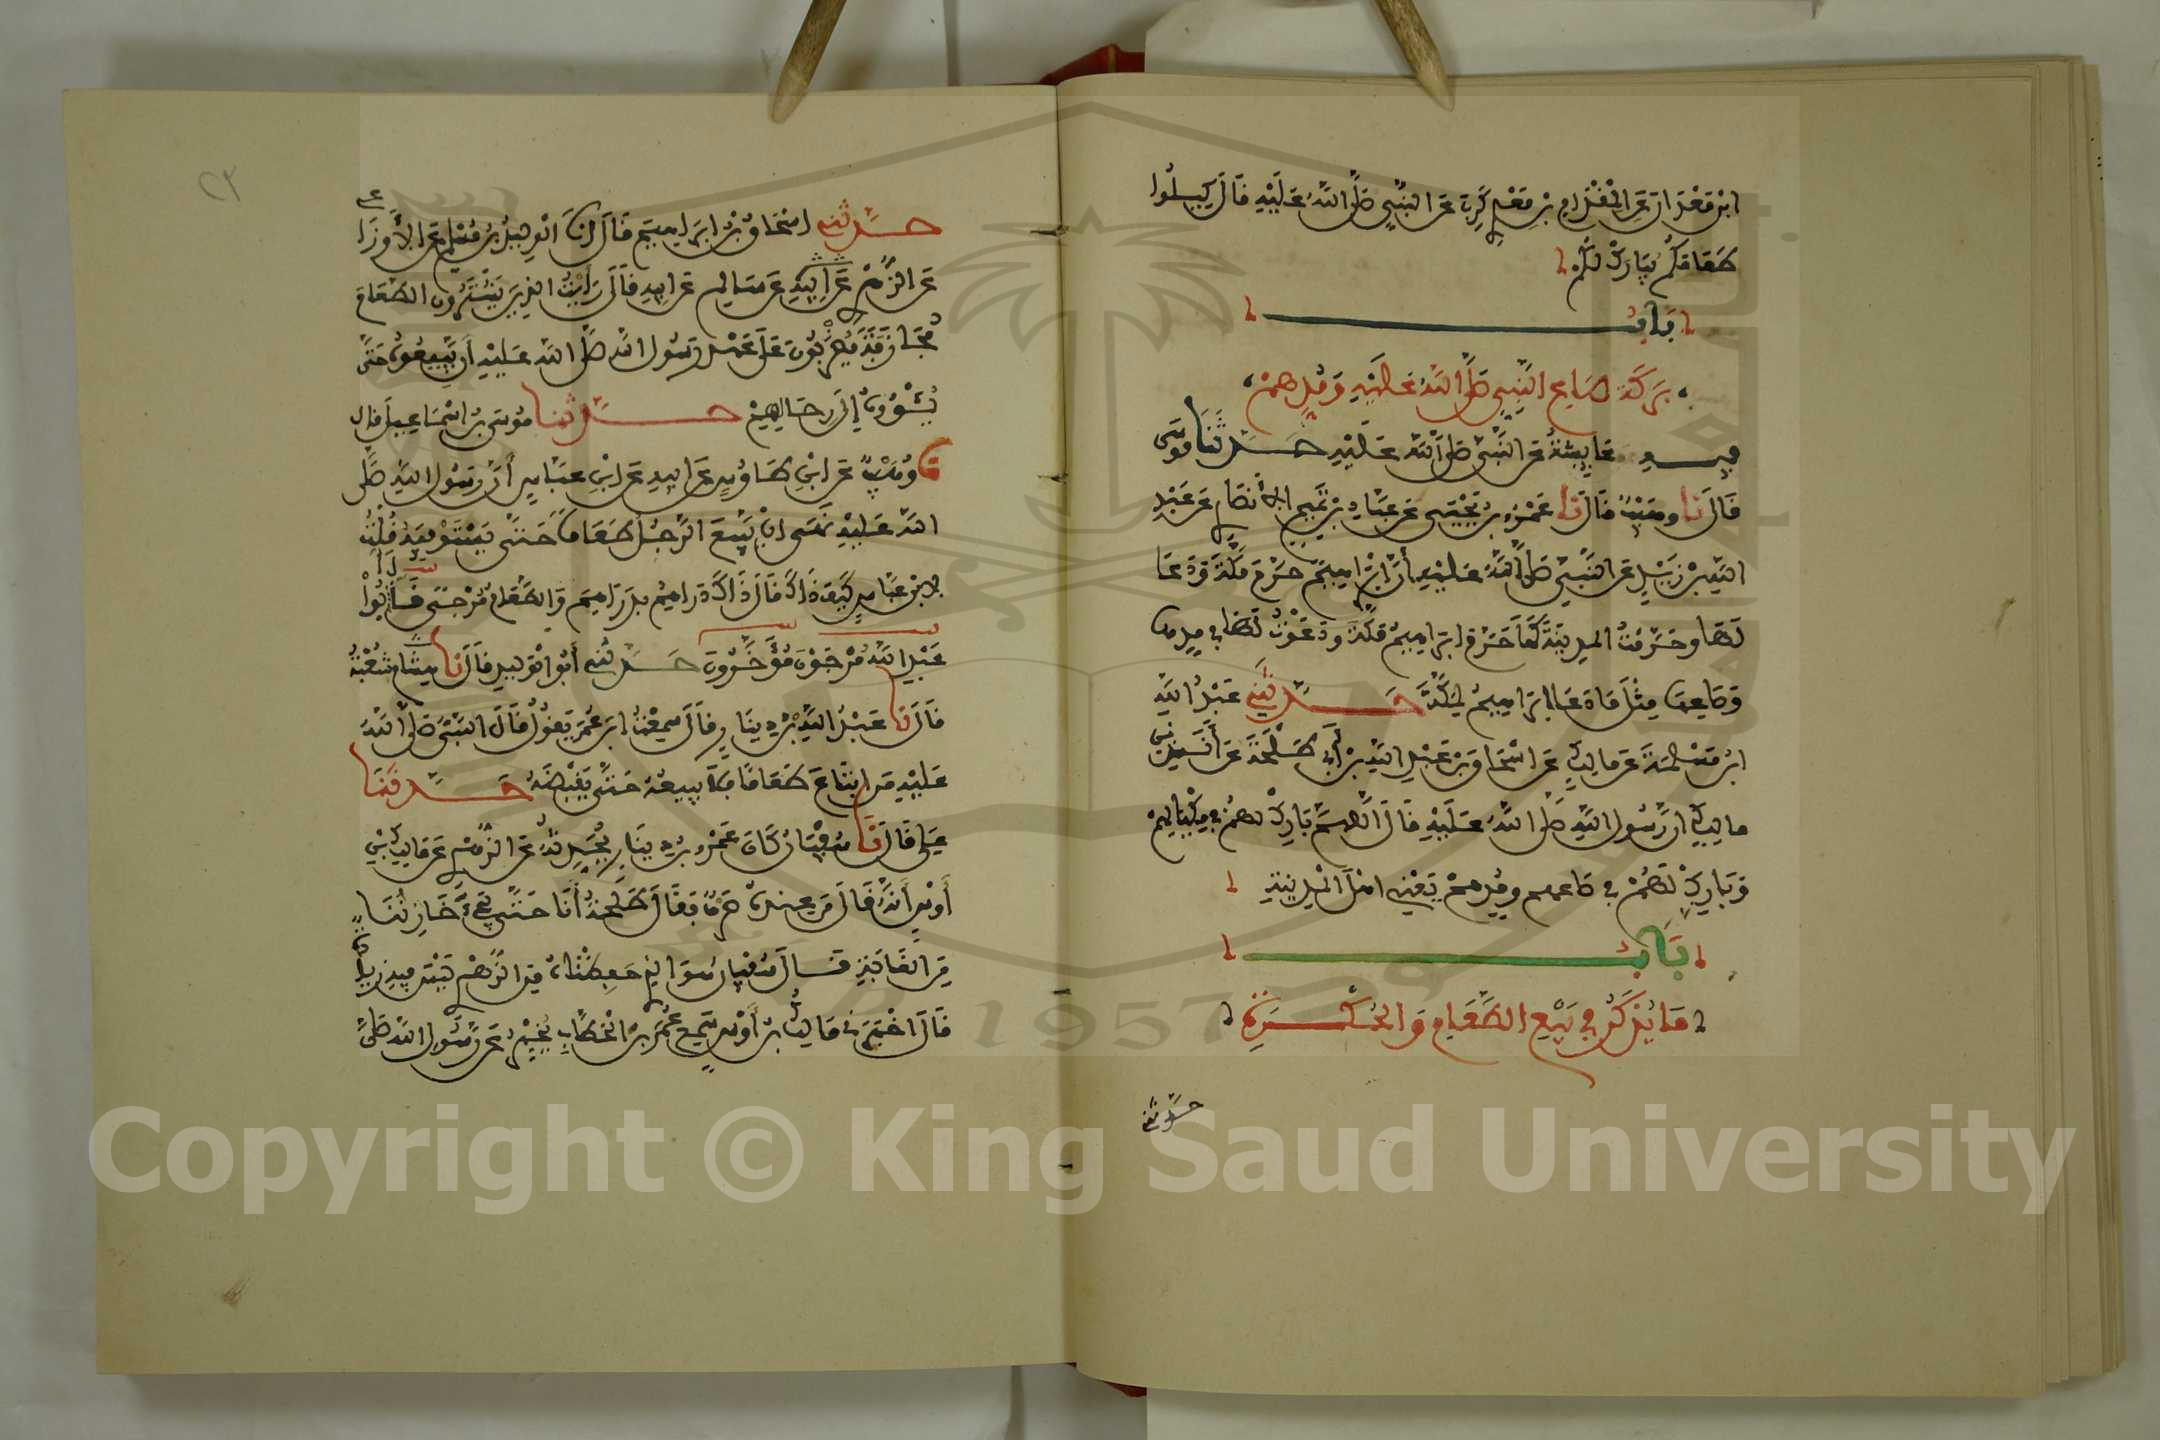 ابن معدان عن المقدام بن معدي كرب عن النبي صلى الله عليه قال كيلوا
طعامكم يبارك لكم
باب
بركة صاع النبي صلى الله عليه ومدهم
فيه عايشة عن النبي صلى الله عليه حدثنا موسى
قال نا وهيب قال نا عمرو بن يحيى عن عباد بن تميم الانصاري عن عبد
الله بن زيد عن النبي صلى الله عليه أن ابراهيم حرم مكة ودعا
لها وحرمت المدينة كما حرم ابراهيم مكة ودعوت لها في مدها
وصاعها مثل ما دعا ابراهيم لمكة حدثني عبد الله
ابن مسلمة عن مالك عن اسحاق بن عبد الله بن أبي طلحة عن أنس بن
مالك ان رسول الله صلى الله عليه قال اللهم بارك لهم في مكيالهم
وبارك لهم في صاعهم ومدهم يعني اهل المدينة
باب
ما يذكر في بيع الطعام والحكرة
حدثني
٢٣
حدثني اسحاق بن ابراهيم قال انا الوليد بن مسلم عن الأوزاعي
عن الزهري عن سالم عن ابيه قال رايت الذين يشترون الطعام
مجازفة يضربون على عهد رسول الله صلى الله عليه أن يبيعوه حتى
يؤوه إلى رحالهم حدثنا موسى بن اسماعيل قال
نا وهيب عن ابن طاوس عن ابيه عن ابن عباس أن رسول الله صلى
الله عليه نهى ان يبيع الرجل طعاما حتى يستوفيه قلت
لابن عباس كيف ذاك قال ذاك دراهم بدراهم والطعام مرجئ قال أبو
عبد الله مرجون مؤخرون حدثني أبو الوليد قال نا شعبة
قال نا عبد الله بن دينار قال سمعت ابن عمر يقول قال النبي صلى الله
عليه من ابتاع طعاما فلا يبيعه حتى يقبضه حدثنا
علي قال نا سفيان كان عمرو بن دينار يحدثه عن الزهري عن مالك بن
أوس أنه قال من عنده صرف فقال طلحة أنا حتى يجيء خازننا
من الغابة قال سفيان هو الذي حفظناه من الزهري ليس فيه زيادة
قال اخبرني مالك بن أوس سمع عمر بن الخطاب يخبر عن رسول الله صلى
Copyright © King Saud University
1957